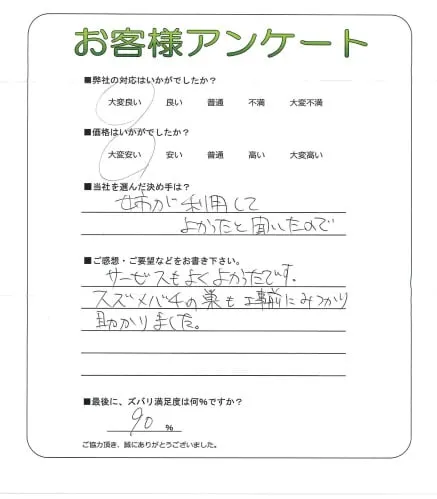 お客様アンケート
■弊社の対応はいかがでしたか？
大変良い 良い 普通 不満 大変不満
■価格はいかがでしたか？
大変安い 安い 普通 高い 大変高い
■当社を選んだ決め手は？
姉が利用して
よかったと聞いたので
■ご感想・ご要望などをお書き下さい。
サービスもよくよかったです。
スズメバチの巣も工事前にみつかり
助かりました。
■最後に、ズバリ満足度は何%ですか？
90 %
ご協力頂き、誠にありがとうございました。